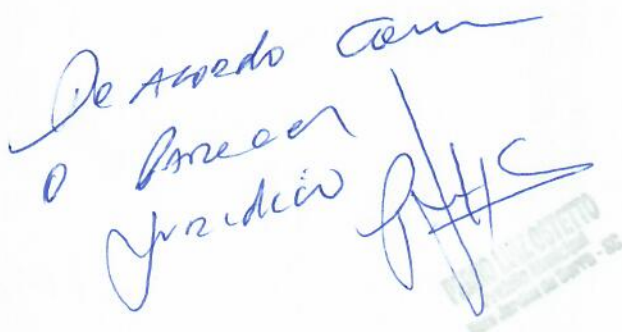 De Acordo com
o Parecer
Jurídico